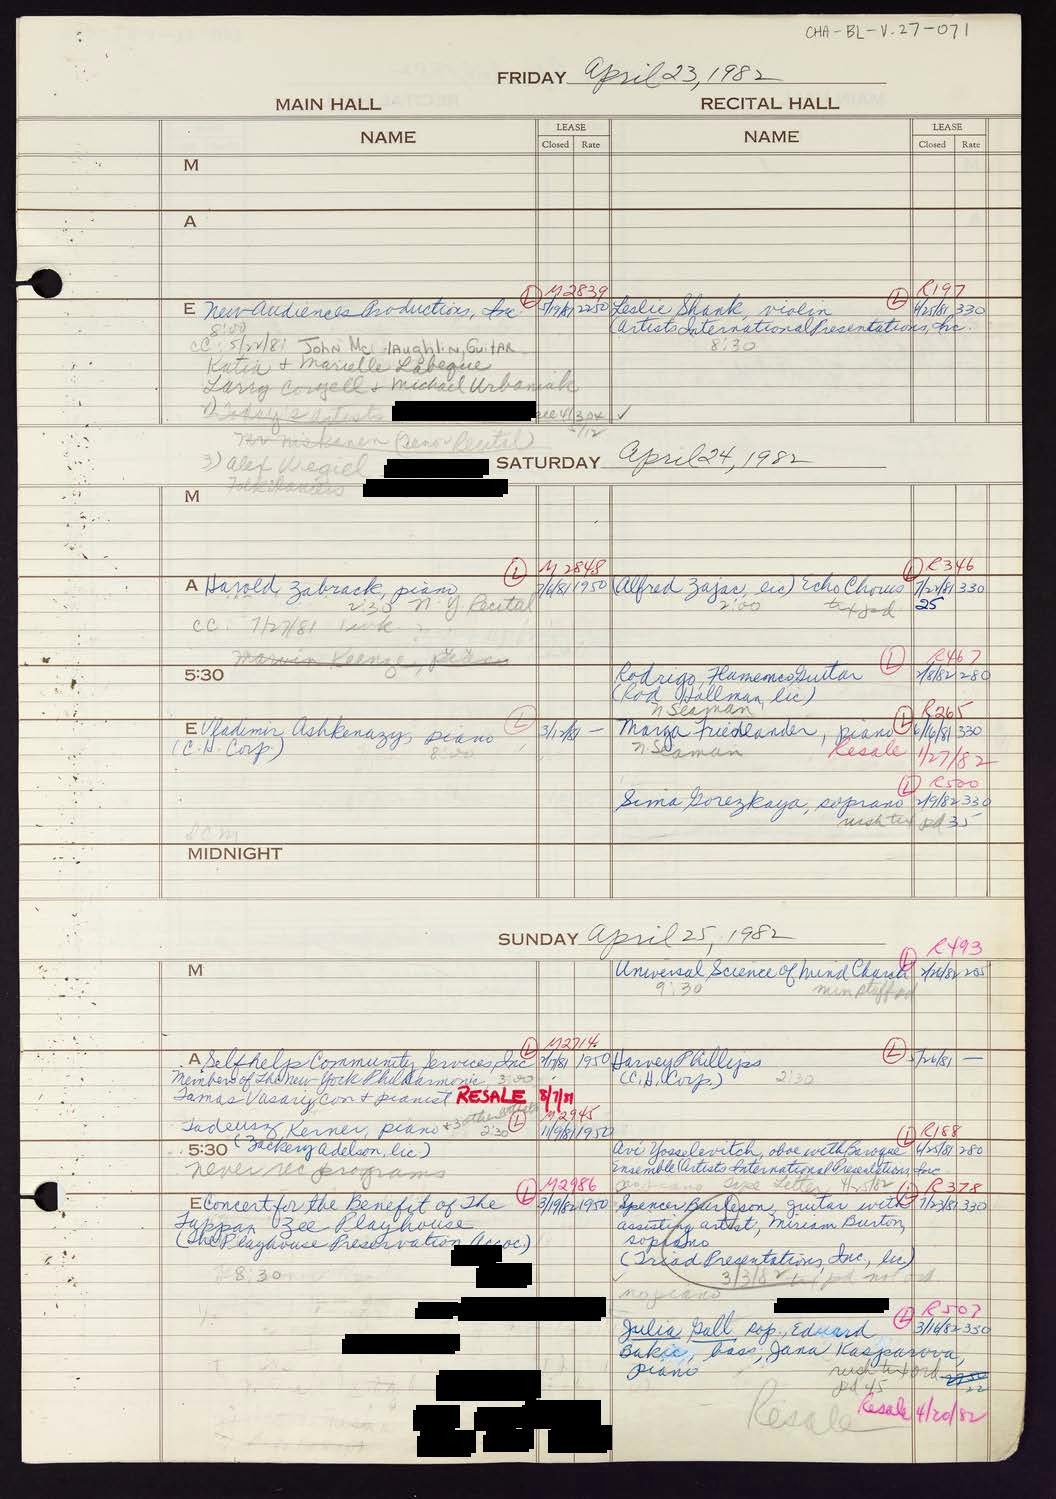 CHA-BL-V.27-071
FRIDAY April 23, 1982
MAIN HALL
RECITAL HALL
NAME
LEASE
Closed Rate
NAME
LEASE
Closed Rate
M
A
M2839
E New Audiences Productions, Inc. L 5/19/81 2250
8:00
CC: 5/22/81 John McLaughlin, Guitar
Katia + Marielle Labeque
Larry Coryell + Michael Urbaniak
1) Today's Artists
(Tenor Recital)
3) Alex
Folkdancers
R197
Leslie Shank, violin L 4/25/81 330
(Artists International Presentations, Inc.
8:30
SATURDAY April 24, 1982
M
M2848
A Harold Zabrack, piano L 7/6/81 1950
2:30 N.Y Recital
CC: 7/27/81
R346
(Alfred Zajac, lic) Echo Chorus L 7/27/81 330
2:00 tx pd 25
5:30
R467
Rodrigo, Flamenco Guitar L 2/8/82 280
(Rod Hallman, lic)
N Seaman
E Vladimir Ashkenazy, piano L 3/12/81 —
(C.H. Corp) 8:00
R265
Marya Friedlander, piano L 6/16/81 330
N. Seaman Resale 1/27/82
R500
Sima Gorezkaya, soprano L 2/9/82 330
rush tx pd 35
MIDNIGHT
SUNDAY April 25, 1982
M
R493
Universal Science of Mind Church L 205
9:30 min staff pd
M2714
A Selfhelp Community Services, Inc L 1950
Members of The New York Philharmonic 3:00
Tamas Vasary, con + pianist RESALE 8/7/81
M2945
Tadeusz Kerner, piano + 3 other artists L 11/9/81 1950
2:30
Harvey Phillips L 5/26/81 —
(C.H. Corp.) 2:30
5:30 (Zackery Adelson, lic.)
never rec programs
R188
Avi Yosselevitch, oboe with Baroque L 4/25/81 280
Ensemble (Artists International Presentations, Inc
M2986
E Concert for the Benefit of The L 3/19/82 1950
Tappan Zee Playhouse
(The Playhouse Preservation Assoc)
8:30
R378
Spencer Burleson, guitar with L 7/23/81 330
assisting artist, Miriam Burton,
soprano
(Triad Presentations, Inc., lic)
3/3/82 tx pd not ord
no piano
R507
Julia Gall sop., Eduard L 3/16/82 330
Bakic, bass, Jana Kasparova,
piano rush tx ord
pd 45 22
Resale 4/20/82
Resale